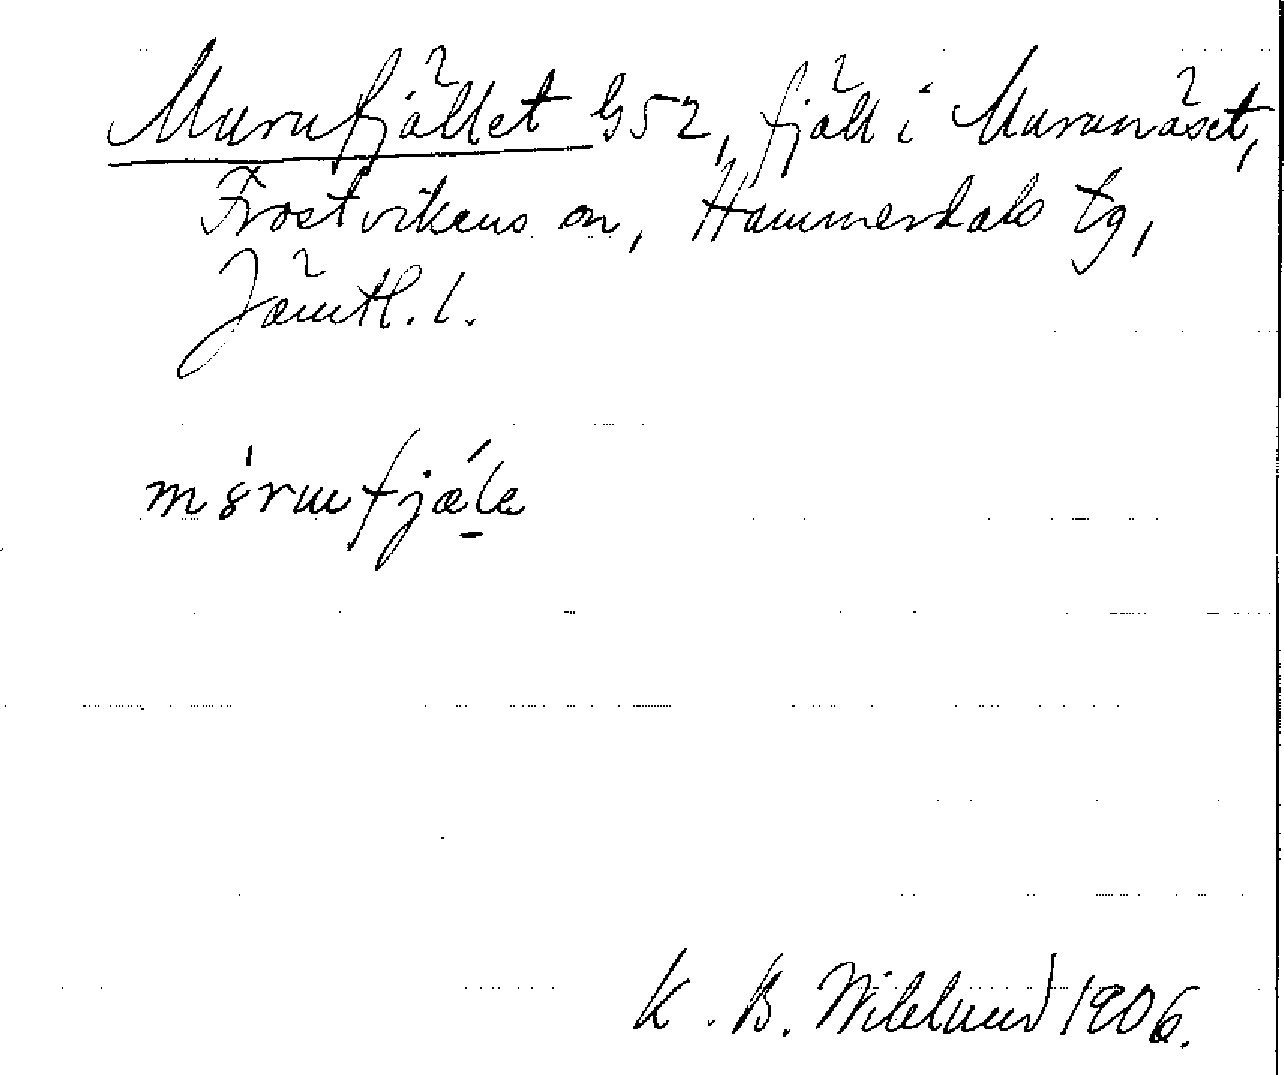 Murufjället G52, fjäll i Murunäset,
Frostvikens sn, Hammerdals tg,
Jämtl. l.
K. B. Wiklund 1906.